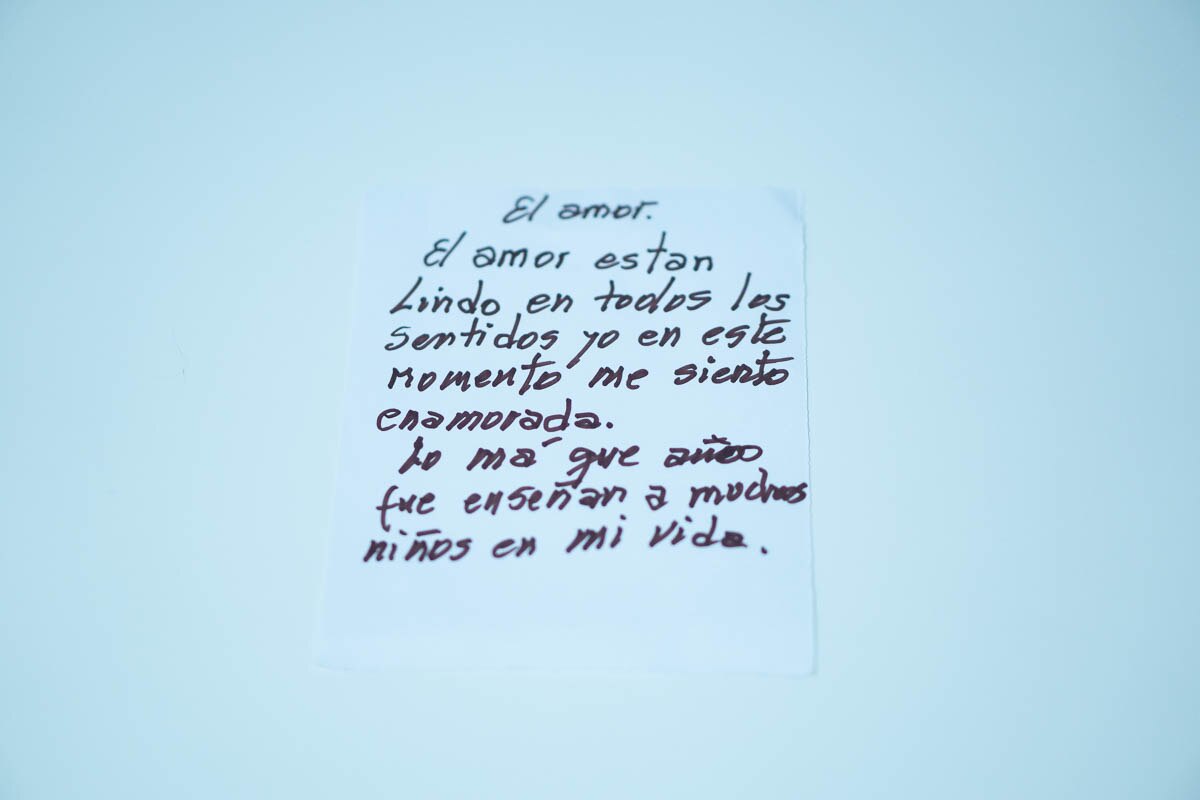 El amor.
El amor estan
Lindo en todos los
sentidos yo en este
momento me siento
enamorada.
Lo má que
fue enseñar a muchos
niños en mi vida.